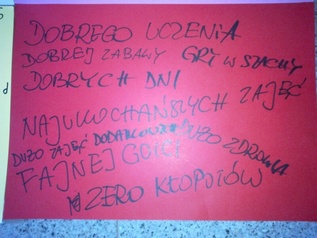 DOBREGO UCZENIA
DOBREJ ZABAWY GRY W SZACHY
DOBRYCH DNI
NAJUKOCHAŃSZYCH ZAJĘĆ
DUŻO ZAJĘĆ DODATKOWYCH DUŻO ZDROWIA
FAJNEJ
ZERO KŁOPOTÓW
d